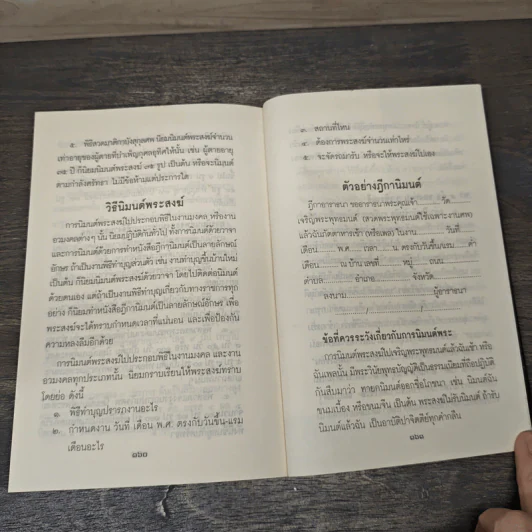 ๕. พิธีสวดมาติกาบังสุกุลศพ นิยมนิมนต์พระสงฆ์จำนวน
เท่าอายุของผู้ตายที่บำเพ็ญกุศลอุทิศให้นั้น เช่น ผู้ตายอายุ
๗๕ ปี ก็นิยมนิมนต์พระสงฆ์ ๗๕ รูป เป็นต้น หรือจะนิมนต์
ตามกำลังศรัทธา ไม่มีข้อห้ามแต่ประการใด
วิธีนิมนต์พระสงฆ์
การนิมนต์พระสงฆ์ไปประกอบพิธีในงานมงคล หรืองาน
อวมงคลต่างๆ นั้น นิยมปฏิบัติกันทั่วไป ทั้งการนิมนต์ด้วยวาจา
และการนิมนต์ด้วยการทำหนังสือฎีกานิมนต์เป็นลายลักษณ์
อักษร ถ้าเป็นงานพิธีทำบุญส่วนตัว เช่น งานทำบุญขึ้นบ้านใหม่
เป็นต้น ก็นิมนต์พระสงฆ์ด้วยวาจา โดยไปติดต่อนิมนต์
ด้วยตนเอง แต่ถ้าเป็นงานพิธีทำบุญเกี่ยวกับทางราชการทุก
อย่าง นิยมทำหนังสือฎีกานิมนต์เป็นลายลักษณ์อักษร เพื่อ
พระสงฆ์จะได้ทราบกำหนดเวลาที่แน่นอน และเพื่อป้องกัน
ความหลงลืมอีกด้วย
การนิมนต์พระสงฆ์ไปประกอบพิธีในงานมงคล และงาน
อวมงคลทุกประเภทนั้น นิยมกราบเรียนให้พระสงฆ์ทราบ
โดยย่อ ดังนี้
๑. พิธีทำบุญปรารภงานอะไร
๒. กำหนดงาน วันที่ เดือน พ.ศ. ตรงกับวันขึ้น-แรม
เดือนอะไร
๓. สถานที่ไหน
๔. ต้องการพระสงฆ์จำนวนเท่าไหร่
๕. จะจัดรถมารับ หรือจะให้พระสงฆ์ไปเอง
ตัวอย่างฎีกานิมนต์
ฎีกาอาราธนา ขออาราธนาพระคุณเจ้า.........วัด.........
เจริญพระพุทธมนต์ (สวดพระพุทธมนต์ใช้เฉพาะงานศพ)
แล้วฉันภัตตาหารเช้า (หรือเพล) ในงาน.........วันที่.........
เดือน.........พ.ศ. .........เวลา.........น. ตรงกับวันขึ้น/แรม.........ค่ำ
เดือน.........ณ บ้านเลขที่.........หมู่.........ถนน.........
ตำบล.........อำเภอ.........จังหวัด.........
ลงนาม.........ผู้อาราธนา
........./........./.........
ข้อที่ควรระวังเกี่ยวกับการนิมนต์พระ
การนิมนต์พระสงฆ์ไปเจริญพระพุทธมนต์แล้วฉันเช้า หรือ
ฉันเพลนั้น มีพระวินัยพุทธบัญญัติเป็นธรรมเนียมที่ถือปฏิบัติ
กันสืบมาว่า ทายกนิมนต์ออกชื่อโภชนะ เช่น นิมนต์ฉัน
ขนมเบื้อง หรือขนมจีน เป็นต้น พระสงฆ์ไม่รับนิมนต์ ถ้ารับ
นิมนต์แล้วฉัน เป็นอาบัติปาจิตตีย์ทุกคำกลืน